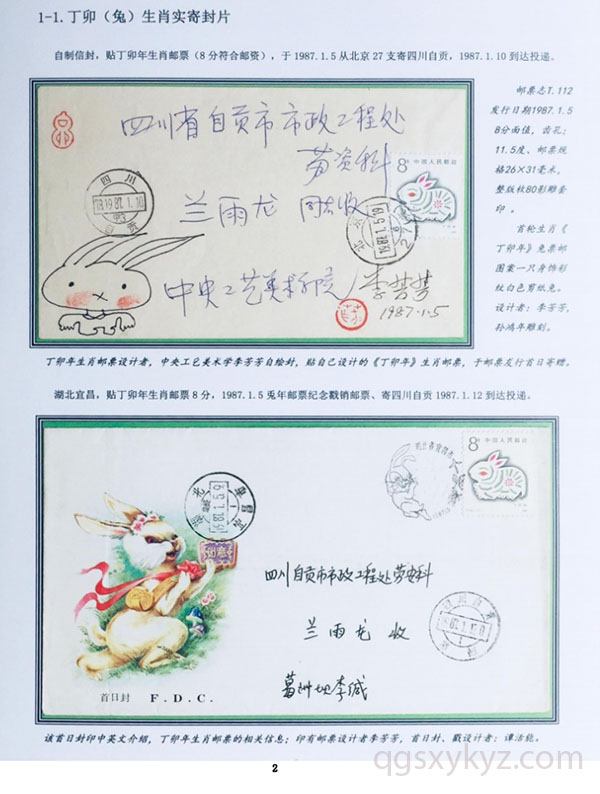 1-1.丁卯（兔）生肖实寄封片
自制信封，贴丁卯年生肖邮票（8分符合邮资），于1987.1.5从北京27支寄四川自贡，1987.1.10到达投递。
四川省自贡市市政工程处
劳资科
兰雨龙 同志收
中央工艺美术学院 李芳芳
1987·1·5
8分 中国人民邮政
四川
19 87.1.10
自贡
北京
邮票志T.112
发行日期1987.1.5
8分面值，齿孔：
11.5度、邮票规
格26×31毫米，
整版枚80影雕套
印。
首轮生肖《
丁卯年》兔票邮
图案一只身饰彩
纹白色剪纸兔。
设计者：李芳芳，
孙鸿年雕刻。
丁卯年生肖邮票设计者，中央工艺美术学李芳芳自绘封，贴自己设计的《丁卯年》生肖邮票，于邮票发行首日寄赠。
湖北宜昌，贴丁卯年生肖邮票8分，1987.1.5兔年邮票纪念戳销邮票、寄四川自贡1987.1.12到达投递。
8分 中国人民邮政
湖北
宜昌
1987.1.5
四川自贡市市政工程处劳资科
兰雨龙 收
葛洲坝李诚
首日封 F.D.C.
该首日封印中英文介绍，丁卯年生肖邮票的相关信息；印有邮票设计者李芳芳，首日封、戳设计者：谭洁能。
2
qgsxykyz.com